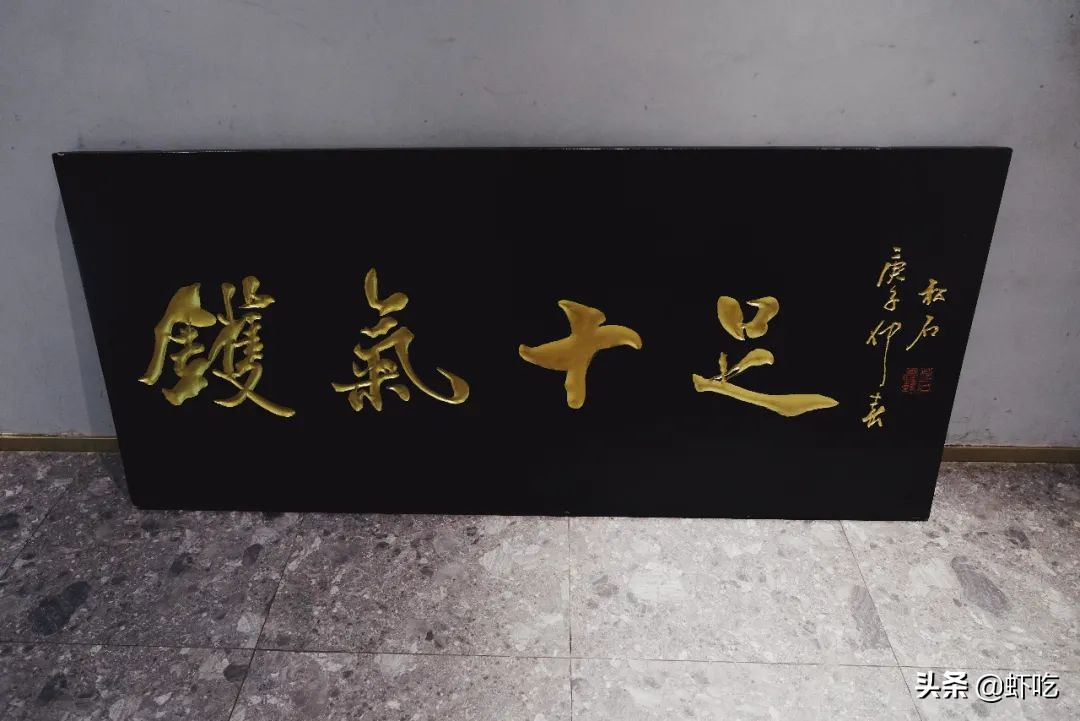 鑊氣十足
庚子仲春
松石
头条 @虾吃